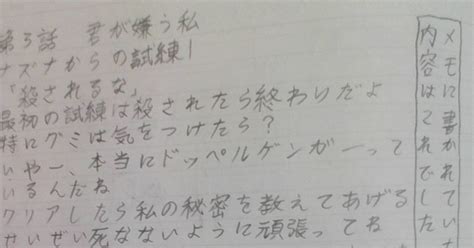 第3話 君が嫌う私
ナズナからの試練!
「殺されるな」
最初の試練は殺されたら終わりだよ
特にグミは気をつけたら?
いやー、本当にドッペルゲンガーって
いるんだね
クリアしたら私の秘密を教えてあげる
せいぜい死なないように頑張ってね
メモに書かれていた
内容はこれでした